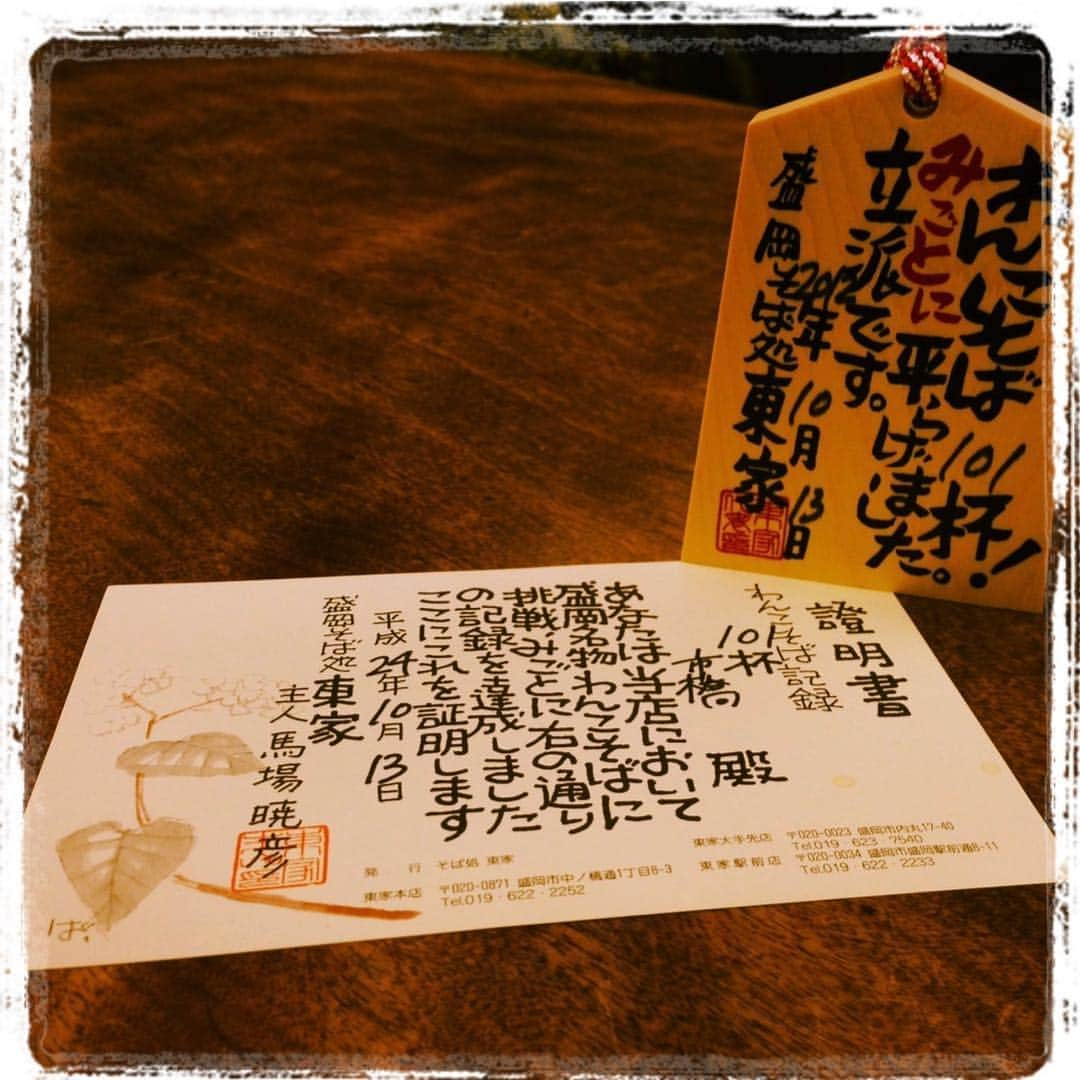 わんこそば101杯!
みごとに平らげました。
立派です。
2012年10月13日
盛岡そば処東家
證明書
わんこそば記録
101杯
市橋 殿
あなたは当店において
盛岡名物わんこそばに
挑戦、みごとに右の通り
の記録を達成しました
ここにこれを証明します
平成24年10月13日
盛岡そば処東家
主人 馬場暁彦
ば.
発行 そば処 東家
東家本店 〒020-0871 盛岡市中ノ橋通1丁目8-3
Tel.019・622・2252
東家大手先店 〒020-0023 盛岡市内丸17-40
Tel.019・623・7540
東家駅前店 〒020-0034 盛岡市盛岡駅前通8-11
Tel.019・622・2233